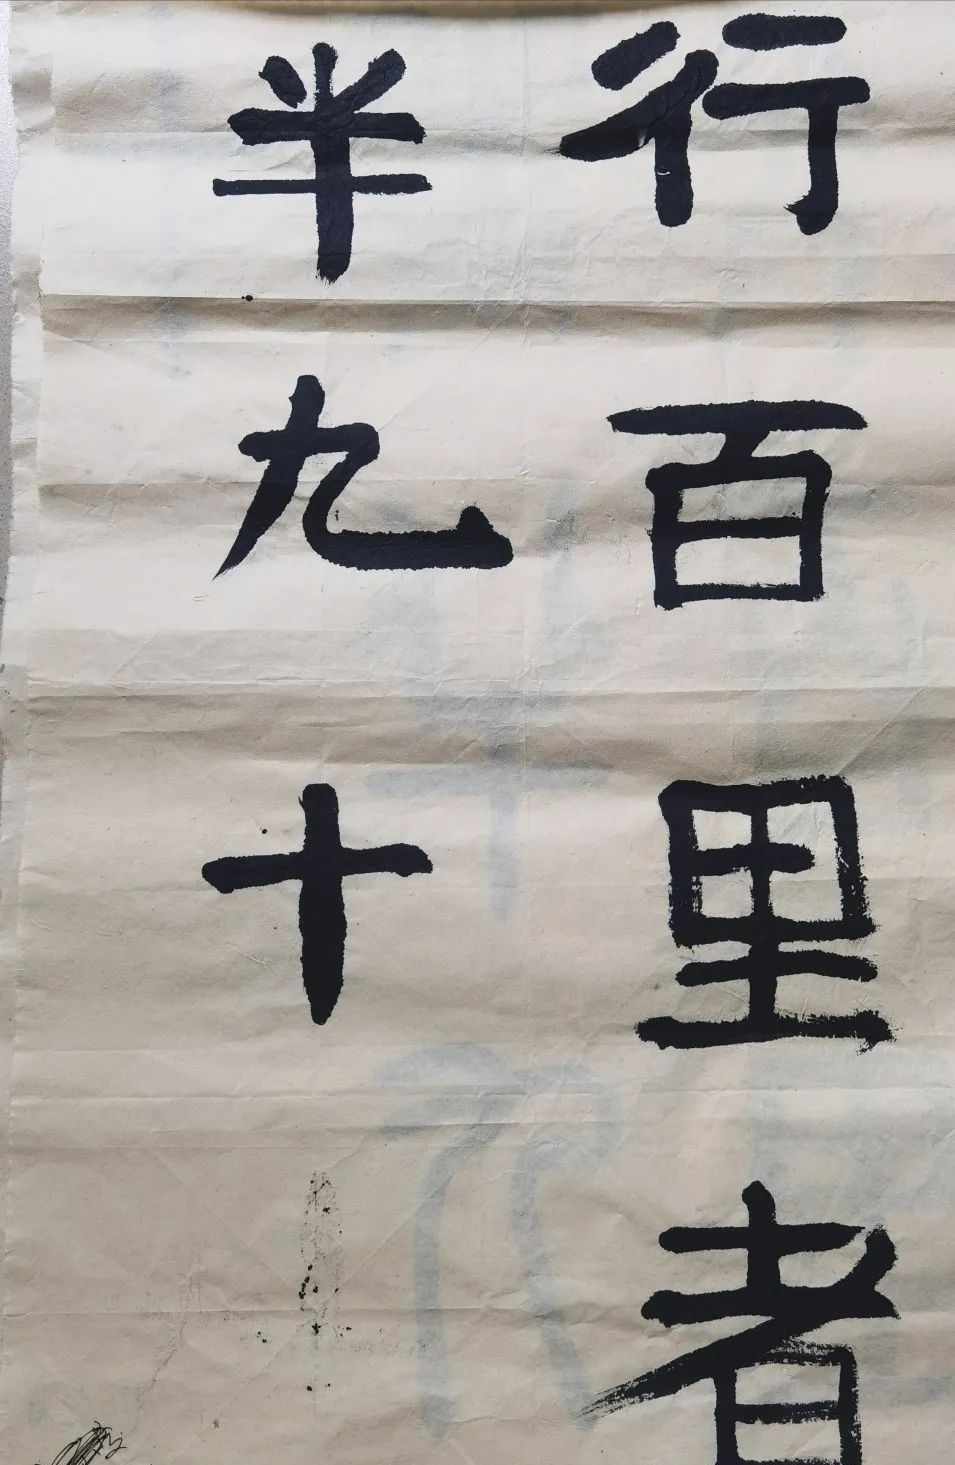 行百里者
半九十